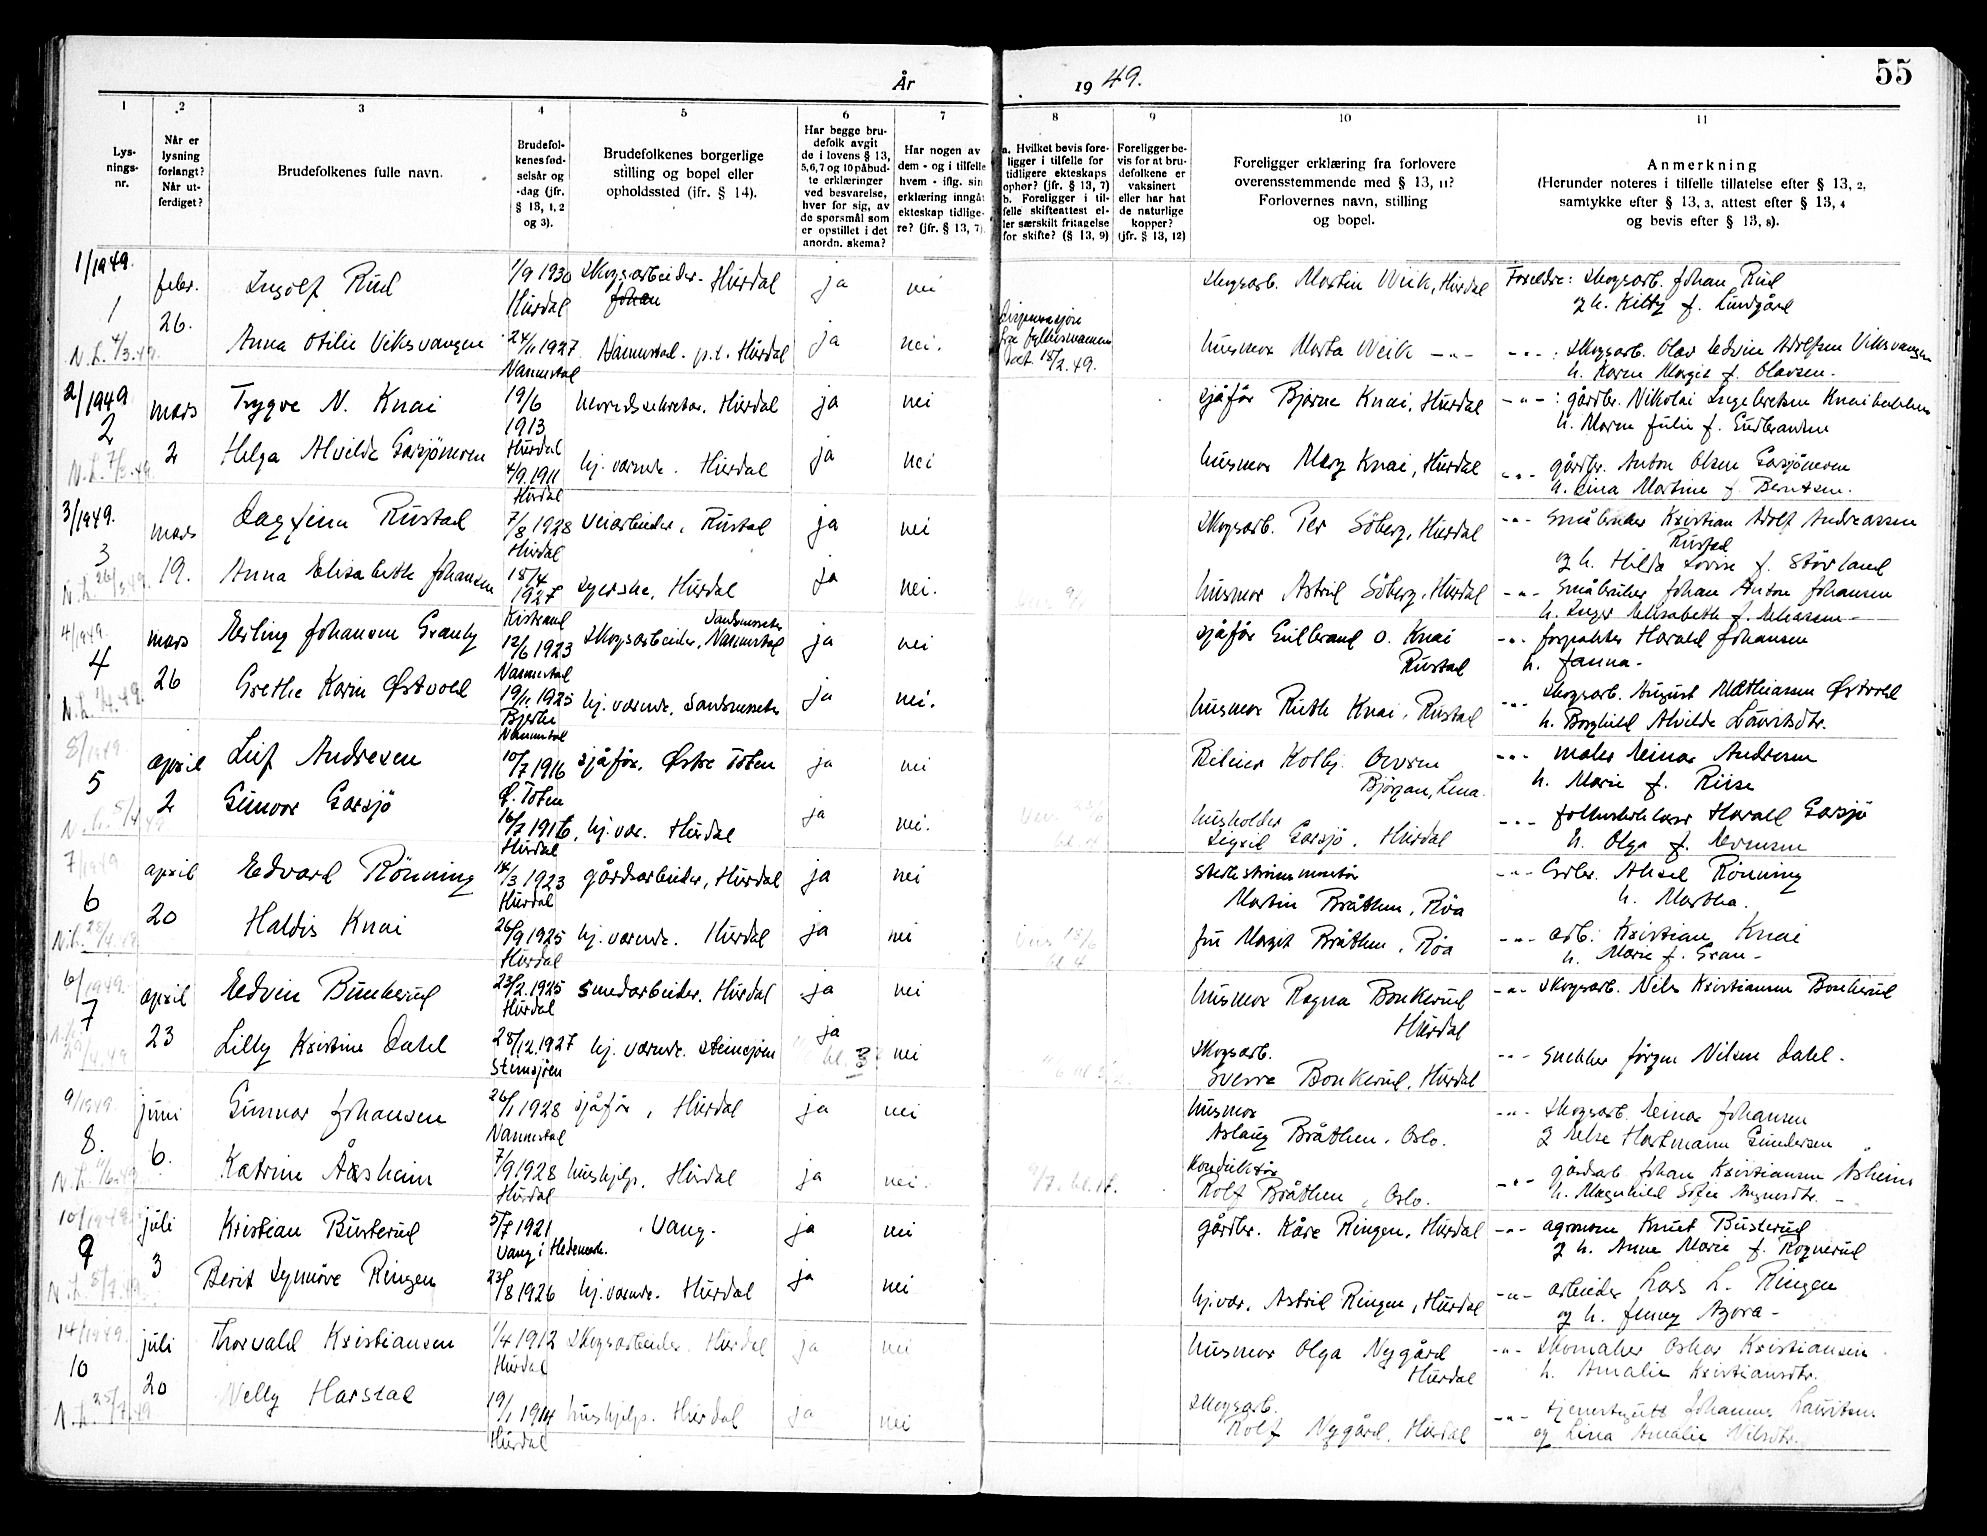 55
År 1949.
1 2 3 4 5 6 7 8 9 10 11
Lysningsnr.
Når er lysning forlangt? Når utferdiget?
Brudefolkenes fulle navn.
Brudefolkenes fødselsår og -dag (jfr. § 13, 1, 2 og 3).
Brudefolkenes borgerlige stilling og bopel eller opholdssted (ifr. § 14).
Har begge brudefolk avgit de i lovens § 13, 5,6,7 og 10 påbudte erklæringer ved besvarelse, hver for sig, av de spørsmål som er opstillet i det anordn. skema?
Har nogen av dem - og i tilfelle hvem - iflg. sin erklæring inngått ekteskap tidligere? (jfr. § 13, 7)
a. Hvilket bevis foreligger i tilfelle for tidligere ekteskaps ophør? (jfr. § 13, 7) b. Foreligger i tilfelle skifteattest eller særskilt fritagelse for skifte? (§ 13, 9)
Foreligger bevis for at brudefolkene er vaksinert eller har hat de naturlige kopper? (jfr. § 13, 12)
Foreligger erklæring fra forlovere overensstemmende med § 13, 11? Forlovernes navn, stilling og bopel.
Anmerkning (Herunder noteres i tilfelle tillatelse efter § 13, 2, samtykke efter § 13, 3, attest efter § 13, 4 og bevis efter § 13, 8).
1/1949. 1 febr. 26. Ingolf Rud 1/9 1930 Hurdal Skogsarbeider. Hurdal ja nei Skogsarb. Martin Weik, Hurdal Foreldre: Skogsarb. Johan Rud
og h. Kitty f. Lundgård
N.L. 4/3.49. Anna Otilie Viksvangen 24/11 1927 Nannestad Nannestad. p.t. Hurdal ja nei. 15/2.49. husmor Marta Weik -"- -"-: Skogsarb. Olav Edvin Adolfsen Viksvangen
h. Karen Margit f. Olavsen.
2/1949 2 mars 2 Trygve N. Knai 19/6 1913 Hurdal herredssekretær. Hurdal ja nei sjåfør Bjarne Knai, Hurdal -"-: gårdbr. Nikolai Ingebretsen
h. Maren Julie f. Gudbrandsen
N.L. 7/3.49. Helga Alvilde Garsjømoen 4/9 1911 Hurdal hj. værende. Hurdal ja nei husmor Mary Knai, Hurdal -"- gårdbr. Anton Olsen Garsjømoen
h. Lina Martine f. Berntsen.
3/1949. 3 mars 19. Dagfinn Rustad 7/8 1928 Hurdal veiarbeider, Rustad ja nei Skogsarb. Per Söberg, Hurdal -"- Småbruker Kristian Adolf Andreassen Rustad
og h. Hilda Lovise f. Störland
N.L. 26/3.49. Anna Elisabeth Johansen 15/4 1927 syerske, Hurdal ja nei. husmor Astrid Söberg, Hurdal -"- Småbruker Johan Anton Johansen
h. Inger Elisabeth f. Eliassen-
4/1949. 4 mars 26 Erling Johansen Granby 12/6 1923 Nannestad Skogsarbeider, Nannestad ja nei sjåför Gulbrand O. Knai Rustad -"- forpakter Harald Johansen
h. Janna-
Grethe Karin Østvold 19/11 1925 Bjerke Nannestad hj. værende. ja nei. husmor Ruth Knai, Rustad -"- Skogsarb. August Mathiassen Østvold
h. Borghild Alvilde Lauritsdtr.
8/1949. 5 april 2 Leif Andresen 10/7 1916 Ø. Toten sjåför, Østre Toten ja nei Bileier Kolbj. Bjørgan, Lena. -"- maler Einar Andresen
h. Marie f. Riise
Gunvor Garsjö 16/7 1916 Hurdal hj. vær. Hurdal ja nei. husholder Sigrid Garsjö, Hurdal -"- Harald Garsjö
h. Olga f. Evensen
7/1949 6 april 20 Edvard Rönning 14/3 1923 Hurdal gårdsarbeider, Hurdal ja nei Martin Bråthen, Røa -"- Gdbr. Aksel Rönning
h. Martha.
Haldis Knai 26/9 1925 Hurdal hj. værende. Hurdal ja nei fru Margit Bråthen, Røa -"- arb. Kristian Knai
h. Marie f. Gran-
6/1949. 7 april 23 Edvin Bunkerud 23/2.1925 Hurdal smedarbeider. Hurdal ja nei husmor Ragna Bonkerud Hurdal -"- Skogsarb. Nils Kristiansen Bonkerud
Lilly Kristine Dahl 28/12.1927 Steinsjøen hj. værende. Steinsjøen ja nei Skogsarb. Sverre Bonkerud, Hurdal -"- snekker Jörgen Nilsen Dahl.
9/1949. 8. juni 6. Gunnar Johansen 26/1 1928 Nannestad sjåför, Hurdal ja nei husmor Aslaug Bråthen, Oslo. -"- Skogsarb. Einar Johansen
og Else Hartmann Gundersen
Katrine Åsheim 7/9 1928 Hurdal hushjelp. Hurdal ja nei. 9/7. bl.17. Konduktör Rolf Bråthen, Oslo. -"- gårdsarb. Johan Kristiansen Åsheim
h. Magnhild Sofie
10/1949. 9 juli 3 Kristian Busterud 5/7 1921 Vang i Hedemark. Vang. ja nei gårdbr. Kåre Ringen, Hurdal -"- agronom Knut Busterud
og h. Anne Marie f. Rognerud
N.L. 5/7.49 Berit Synnöve Ringen 23/8 1926 hj. værende. Hurdal ja nei hj.vær. Astrid Ringen, Hurdal -"- arbeider Lars L. Ringen
og h. Jenny Agora-
14/1949. 10 juli 20 Thorvald Kristiansen 1/4 1912 Hurdal Skogsarbeider. Hurdal ja nei husmor Olga Nygård Hurdal -"- Skomaker Oskar Kristiansen
h. Amalie Kristiansdtr.
N.L. 25/7.49 Nelly Harstad 19/1 1914 Hurdal hushjelp. Hurdal ja nei Skogsarb. Rolf Nygård, Hurdal -"- Johannes Lauritsen
og Lina Amalie Nilsdtr.